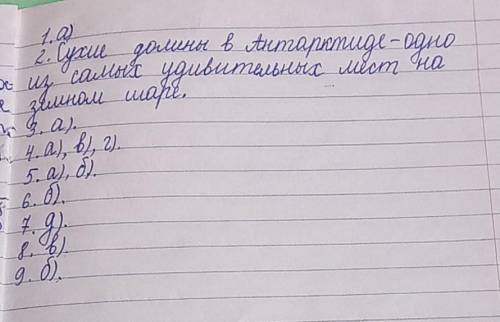 1. а)
2. Сухие долины в Антарктиде - одно
из самых удивительных мест на
земном шаре.
3. а).
4. а), в), г).
5. а), б).
6. б).
7. д).
8. в).
9. б).